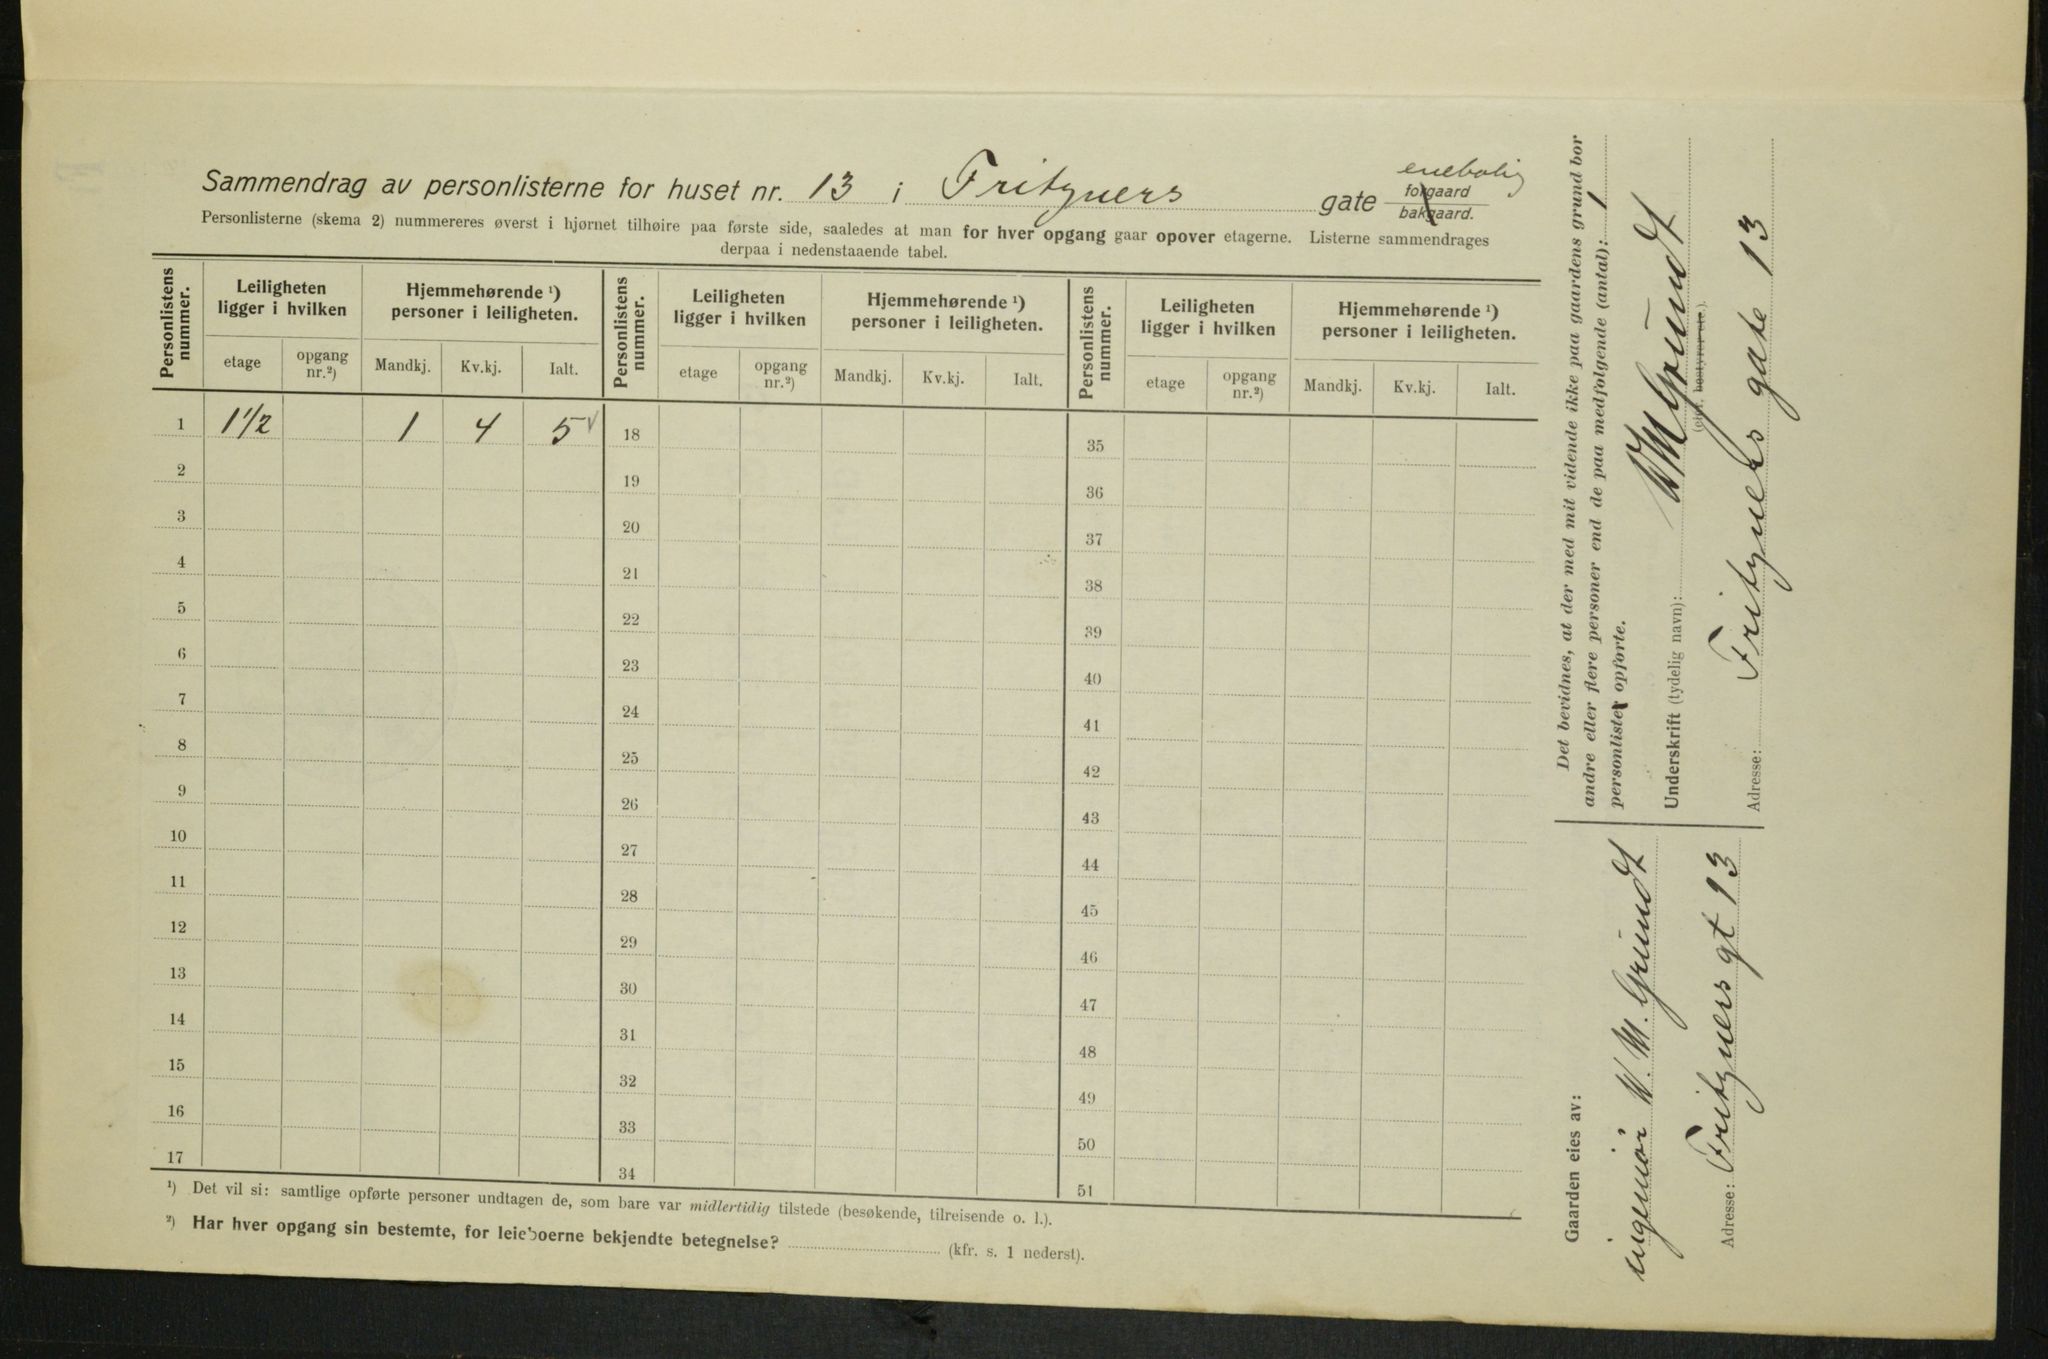 Sammendrag av personlisterne for huset nr. 13 i Fritzners gate forgaard bakgaard. enebolig
Personlisterne (skema 2) nummereres øverst i hjørnet tilhøire paa første side, saaledes at man for hver opgang gaar opover etagerne. Listerne sammendrages
derpaa i nedenstaaende tabel.
Personlistens nummer. Leiligheten ligger i hvilken Hjemmehørende ¹) personer i leiligheten. Personlistens nummer. Leiligheten ligger i hvilken Hjemmehørende ¹) personer i leiligheten. Personlistens nummer. Leiligheten ligger i hvilken Hjemmehørende ¹) personer i leiligheten.
etage opgang nr.²) Mandkj. Kv.kj. Ialt. etage opgang nr.²) Mandkj. Kv.kj. Ialt. etage opgang nr.²) Mandkj. Kv.kj. Ialt.
1 1 1/2 1 4 5 18 35
2 19 36
3 20 37
4 21 38
5 22 39
6 23 40
7 24 41
8 25 42
9 26 43
10 27 44
11 28 45
12 29 46
13 30 47
14 31 48
15 32 49
16 33 50
17 34 51
¹) Det vil si: samtlige opførte personer undtagen de, som bare var midlertidig tilstede (besøkende, tilreisende o. l.).
²) Har hver opgang sin bestemte, for leieboerne bekjendte betegnelse? (kfr. s. 1 nederst).
Gaarden eies av:
ingeniør W. M. Grundt
Adresse: Fritzners gt 13
Det bevidnes, at der med mit vidende ikke paa gaardens grund bor
andre eller flere personer end de paa medfølgende (antal): 1
personlister opførte.
Underskrift (tydelig navn): WM Grundt
(eier, bestyrer etc.).
Adresse: Fritzners gate 13